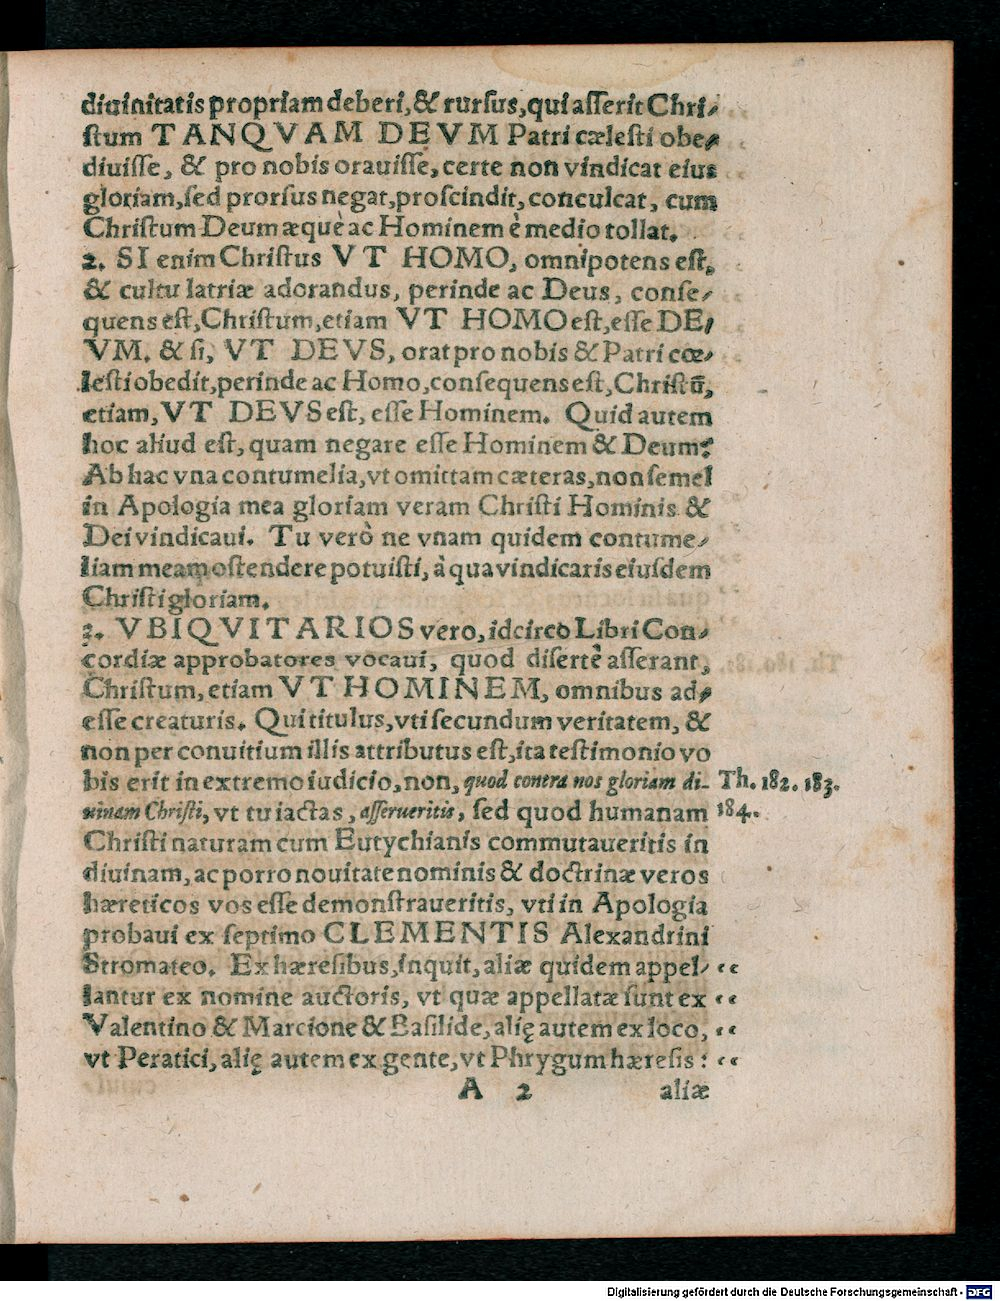 diuinitatis propriam deberi, & rursus, qui asserit Chri-
stum TANQVAM DEVM Patri cælesti obe-
diuisse, & pro nobis orauisse, certe non vindicat eius
gloriam, sed prorsus negat, proscindit, conculcat, cum
Christum Deum æquè ac Hominem è medio tollat.
2. SI enim Christus VT HOMO, omnipotens est,
& cultu latriæ adorandus, perinde ac Deus, conse-
quens est, Christum, etiam VT HOMO est, esse DE-
VM. & si, VT DEVS, orat pro nobis & Patri cœ-
lesti obedit, perinde ac Homo, consequens est, Christū,
etiam, VT DEVS est, esse Hominem. Quid autem
hoc aliud est, quam negare esse Hominem & Deum?
Ab hac vna contumelia, vt omittam cæteras, non semel
in Apologia mea gloriam veram Christi Hominis &
Dei vindicaui. Tu verò ne vnam quidem contume-
liam meam ostendere potuisti, à qua vindicaris eiusdem
Christi gloriam.
3. VBIQVITARIOS vero, idcirco Libri Con-
cordiæ approbatores vocaui, quod disertè asserant,
Christum, etiam VT HOMINEM, omnibus ad-
esse creaturis. Qui titulus, vti secundum veritatem, &
non per conuitium illis attributus est, ita testimonio vo
bis erit in extremo iudicio, non, quod contra nos gloriam di- Th. 182. 183.
uinam Christi, vt tu iactas, asserueritis, sed quod humanam 184.
Christi naturam cum Eutychianis commutaueritis in
diuinam, ac porro nouitate nominis & doctrinæ veros
hæreticos vos esse demonstraueritis, vti in Apologia
probaui ex septimo CLEMENTIS Alexandrini
Stromateo. Ex hæresibus, inquit, aliæ quidem appel- "
lantur ex nomine auctoris, vt quæ appellatæ sunt ex "
Valentino & Marcione & Basilide, alię autem ex loco, "
vt Peratici, alię autem ex gente, vt Phrygum hæresis: "
A 2 aliæ
Digitalisierung gefördert durch die Deutsche Forschungsgemeinschaft - DFG